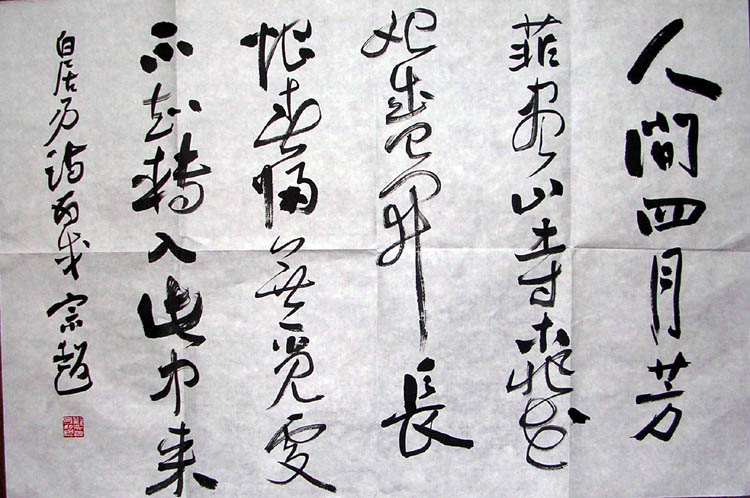 人間四月芳
菲盡山寺桃花
始盛開長
恨春歸無覓處
不知轉入此中来
白居易詩 宗超